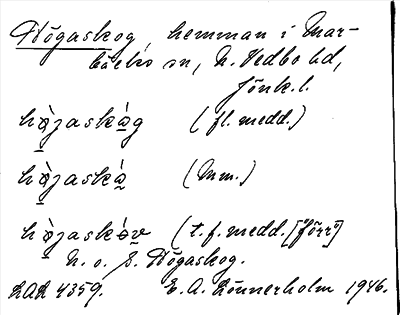 Högaskog, hemman i Mar-
bäcks sn, N. Vedbo hd,
Jönk.l.
hø̀jaskɷ́g (fl. medd.)
hø̀jaskɷ́ (Mm.)
hø̀jaskɷ́v (t.f. medd. ["förr"]
N. o. S. Högaskog.
LAL 4359. E. A. Lönnerholm 1946.